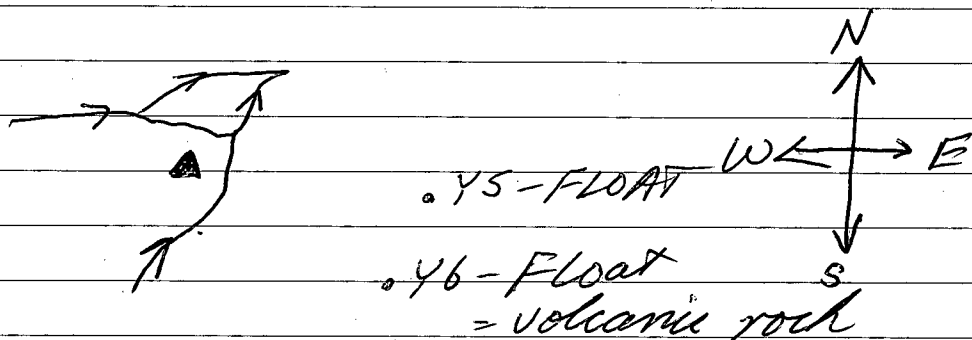 N
W E
.Y5-FLOAT
S
.Y6-Float
= volcanic rock